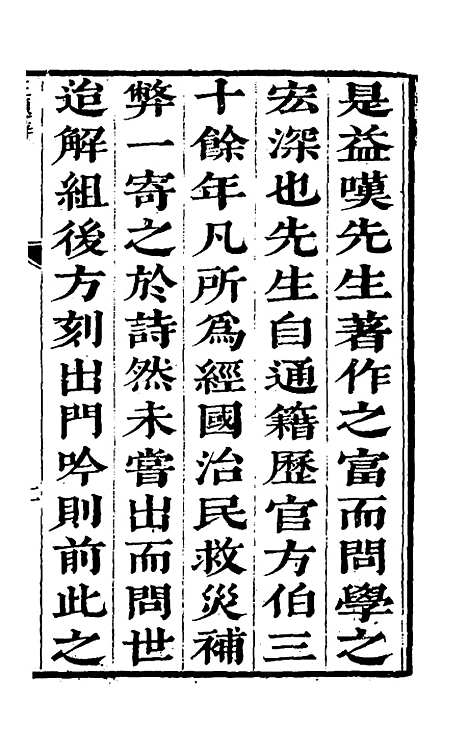 是益嘆先生著作之富而問學之
宏深也先生自通籍歷官方伯三
十餘年凡所為經國治民救災補
弊一寄之於詩然未嘗出而問世
迨解組後方刻出門吟則前此之